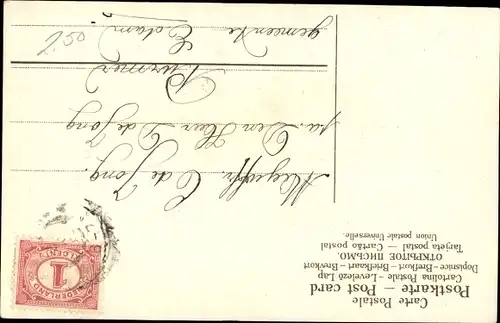 Carte Postale
Postkarte — Post card
Cartolina Postale - Levelező Lap
Dopisnice - Brefkort - Briefkaart - Brevkort
ОТКРЫТОЕ ПИСЬМО.
Tarjeta postal — Cartão postal
Union postale Universelle.
C de Jong.
p.a. Den Heer D de Jong
Purmer
gemeente Edam
NEDERLAND
1
CENT
1.50